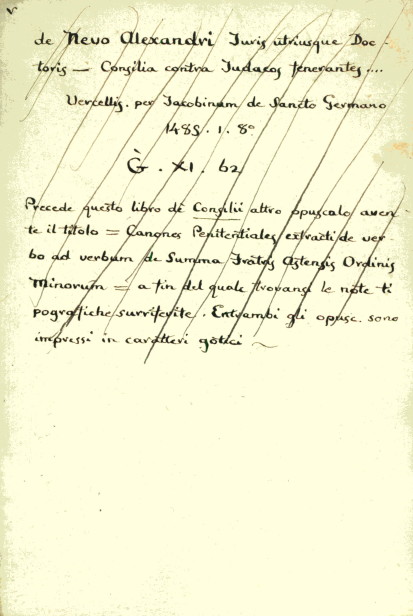 de Nevo Alexandri Juris utriusque Doc-
toris — Consilia contra Judaeos fenerantes....
Vercellis. per Jacobinum de Sancto Germano
1485. 1. 8°
G. XI. 62
Precede questo libro dè Consilii altro opuscolo aven-
te il titolo = Canones Penitentiales extracti de ver
bo ad verbum de Summa Fratris Astensis Ordinis
Minorum = a fin del quale trovansi le note ti
pografiche surriferite. Entrambi gli opusc. sono
impressi in caratteri gotici ~